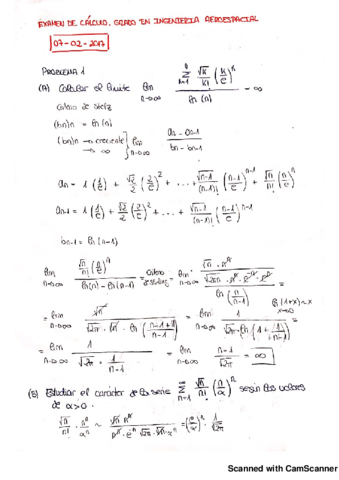 EXAMEN DE CÁLCULO. GRADO EN INGENIERÍA AEROESPACIAL
07-02-2017
PROBLEMA 1
(A) Calcular el límite lim n→∞ Σ k=1 n √k/k! (k/e)^k / ln(n)
Criterio de Stolz
(bn)n = ln(n)
(bn)n → creciente → ∞ } lim n→∞ an - an-1 / bn - bn-1
an = 1 (1/e) + √2/2 (2/e)^2 + ... + √n-1/(n-1)! (n-1/e)^n-1 + √n/n! (n/e)^n
an-1 = 1 (1/e) + √2/2 (2/e)^2 + ... + √n-1/(n-1)! (n-1/e)^n-1
bn-1 = ln(n-1)
lim n→∞ √n/n! (n/e)^n / ln(n) - ln(n-1) = = lim n→∞
ln(1+x) ~ x x→0
= lim n→∞ 1 / √2π · 1/n-1 = lim n→∞ n-1/√2π = ∞
(B) Estudiar el carácter de la serie Σ n=1 ∞ √n/n! (n/α)^n según los valores
de α>0.
√n/n! · n^n/α^n ~ √n n^n / n^n · e^-n √2π √n · α^n = (e/α)^n · 1/√2π
Scanned with CamScanner